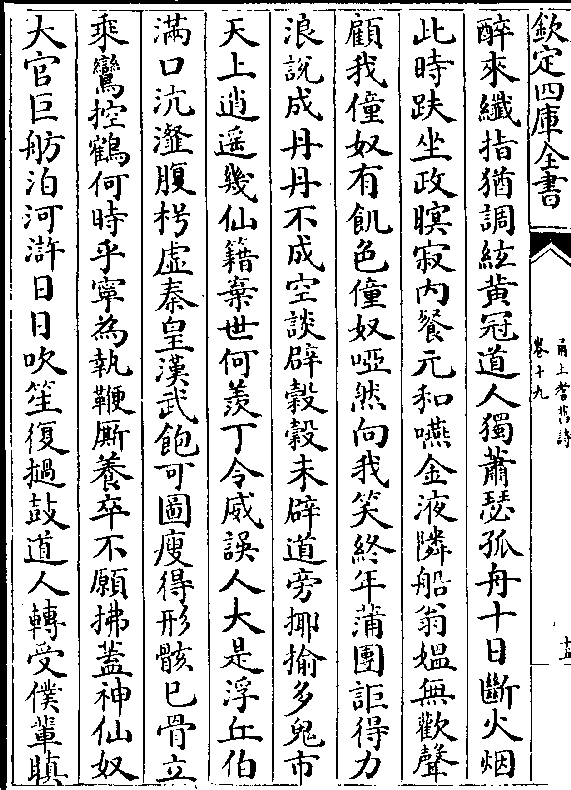 欽定四庫全書
甬上耆舊詩
卷十九
十五
醉來纖指猶調絃黄冠道人獨蕭瑟孤舟十日斷火烟
此時趺坐政暝寂内餐元和嚥金液隣船翁媼無歡聲
顧我僮奴有飢色僮奴啞然向我笑終年蒲團詎得力
浪說成丹丹不成空談辟穀穀未辟道旁揶揄多鬼市
天上逍遥幾仙籍棄世何羡丁令威誤人大是浮丘伯
滿口沆瀣腹枵虚秦皇漢武飽可圖瘦得形骸已骨立
乘鸞控鶴何時乎寧為執鞭厮養卒不願拂葢神仙奴
大官巨舫泊河滸日日吹笙復撾鼓道人轉受僕輩瞋